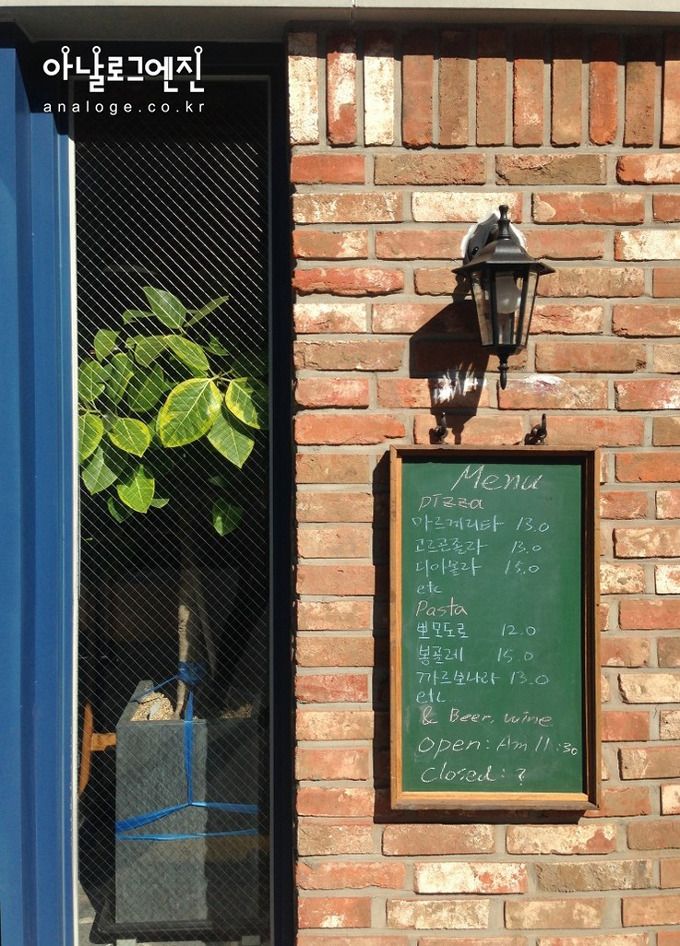 아날로그엔진
analoge.co.kr
Menu
pizza
마르게리타 13.0
고르곤졸라 13.0
디아볼라 15.0
etc
Pasta
뽀모도로 12.0
봉골레 15.0
까르보나라 13.0
etc
& Beer, wine
Open: Am 11:30
Closed: ?